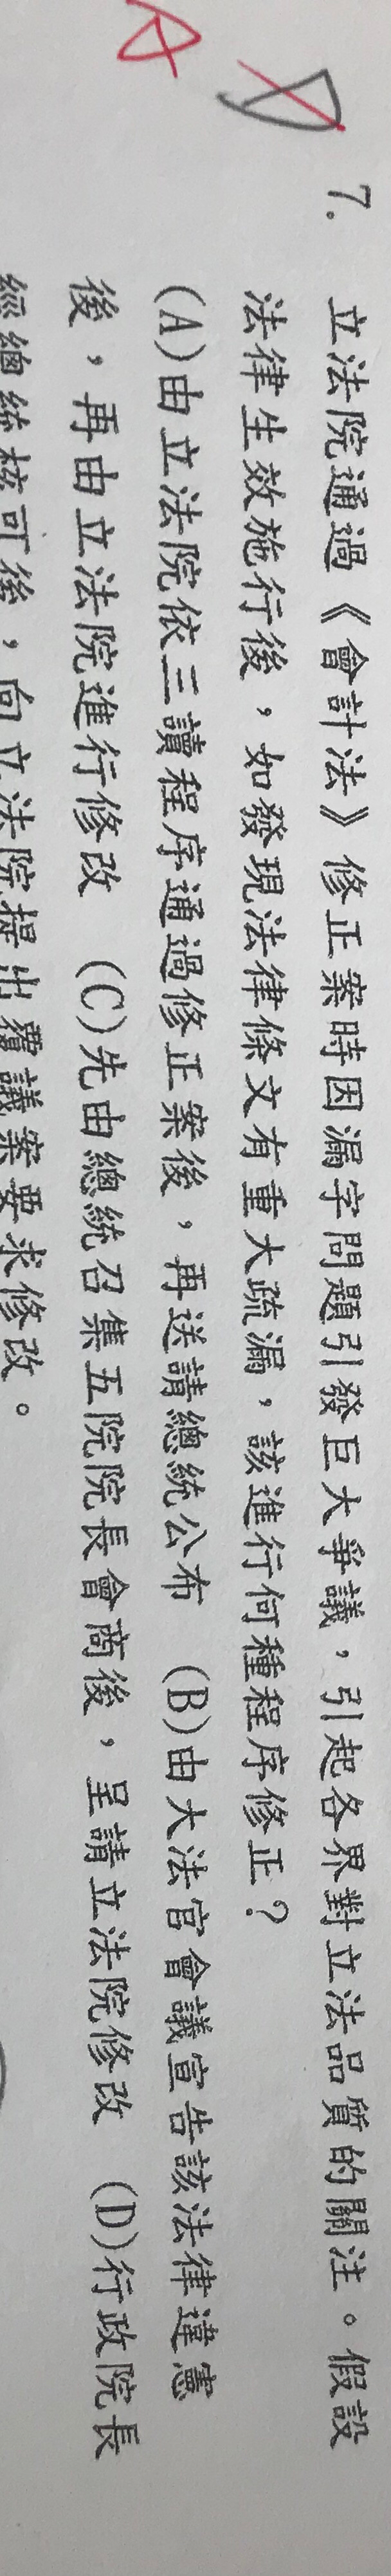 A D 7. 立法院通過《會計法》修正案時因漏字問題引發巨大爭議，引起各界對立法品質的關注。假設
法律生效施行後，如發現法律條文有重大疏漏，該進行何種程序修正？
(A)由立法院依三讀程序通過修正案後，再送請總統公布　(B)由大法官會議宣告該法律違憲
後，再由立法院進行修改　(C)先由總統召集五院院長會商後，呈請立法院修改　(D)行政院長
經總統核可後，向立法院提出覆議案要求修改。